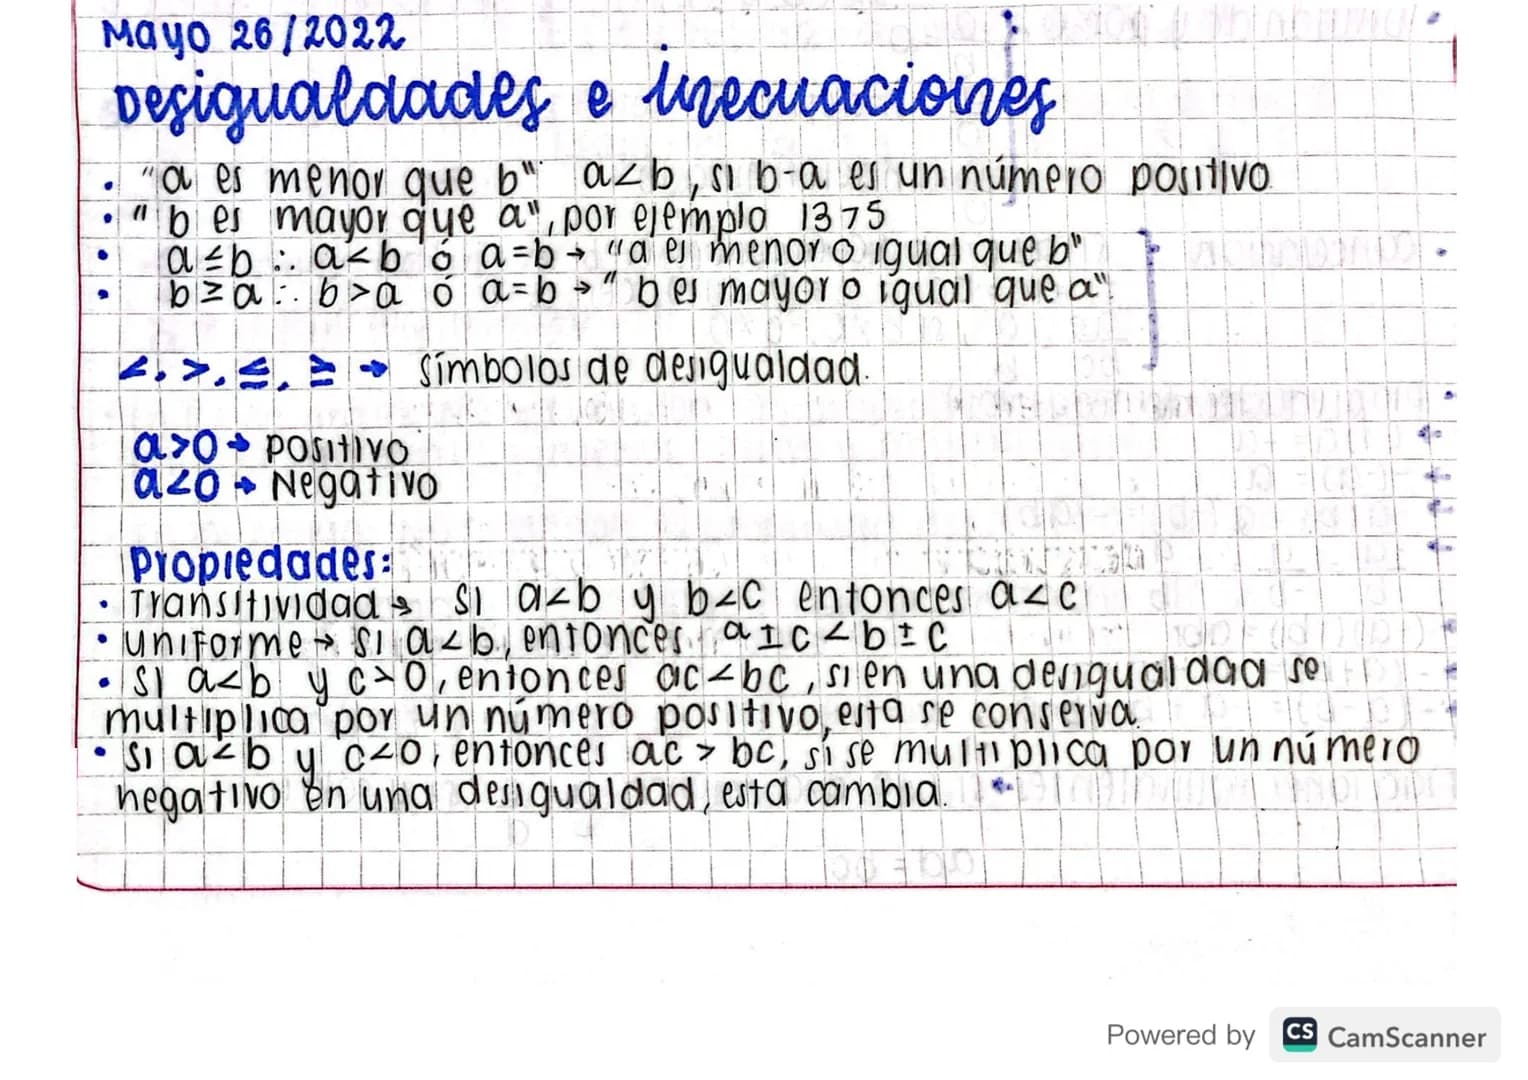 Mayo 26/2022
Desigualdades e inecuaciones
• "a es menor que b" a<b, si b-a es un número positivo
• "b es mayor que a", por ejemplo 1375
• a≤b ∴ a<b ó a=b → "a es menor o igual que b"
• b≥a ∴ b>a ó a=b → "b es mayor o igual que a".
<, >, ≤, ≥ → símbolos de desigualdad.
a>0 → positivo
a<0 → Negativo
Propiedades:
• Transitividad → si a<b y b<c entonces a<c
• uniforme → si a<b, entonces a±c<b±c
• si a<b y c>0, entonces ac<bc, si en una desigualdad se
multiplica por un número positivo, esta se conserva.
• si a<b y c<0, entonces ac > bc, si se multiplica por un número
negativo en una desigualdad, esta cambia.
Powered by CS CamScanner